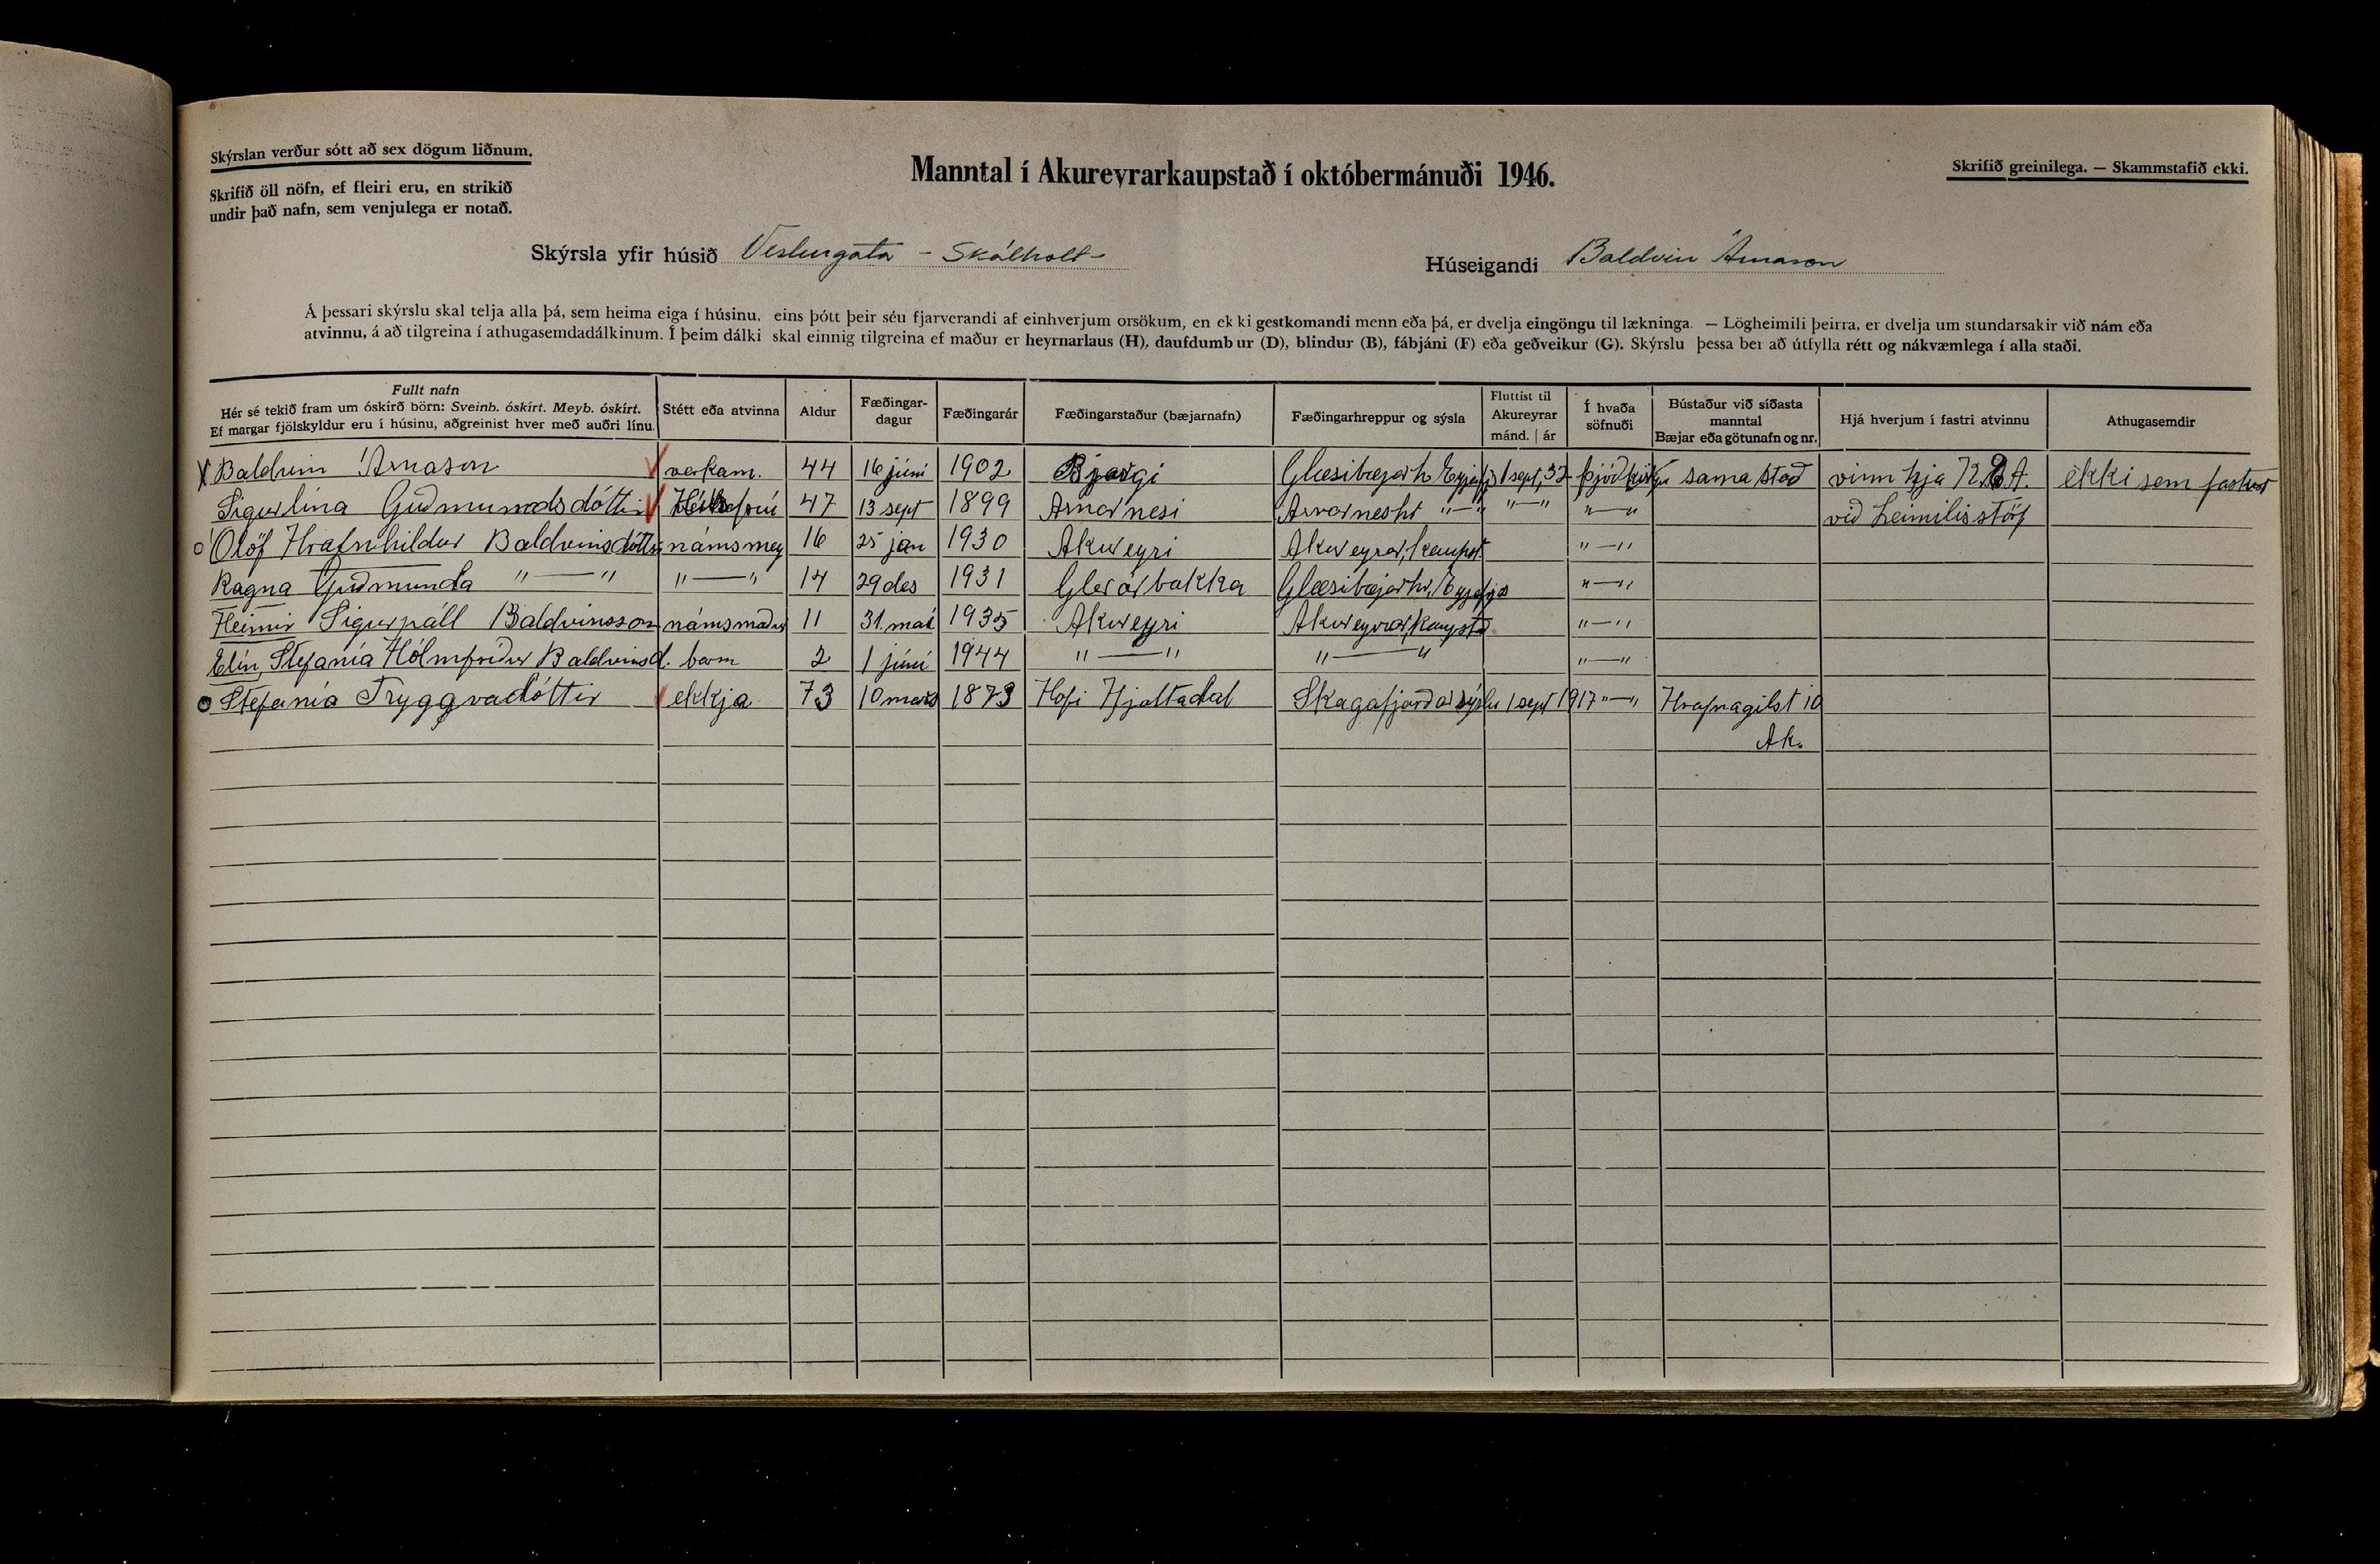 Skýrslan verður sótt að sex dögum liðnum.
Skrifið öll nöfn, ef fleiri eru, en strikið
undir það nafn, sem venjulega er notað.
Manntal í Akureyrarkaupstað í októbermánuði 1946.
Skrifið greinilega. — Skammstafið ekki.
Skýrsla yfir húsið Vesturgata - Skálholt -
Húseigandi Baldvin Árnason
Á þessari skýrslu skal telja alla þá, sem heima eiga í húsinu, eins þótt þeir séu fjarverandi af einhverjum orsökum, en ekki gestkomandi menn eða þá, er dvelja eingöngu til lækninga. — Lögheimili þeirra, er dvelja um stundarsakir við nám eða
atvinnu, á að tilgreina í athugasemdadálkinum. Í þeim dálki skal einnig tilgreina ef maður er heyrnarlaus (H), daufdumbur (D), blindur (B), fábjáni (F) eða geðveikur (G). Skýrslu þessa ber að útfylla rétt og nákvæmlega í alla staði.
Fullt nafn
Hér sé tekið fram um óskírð börn: Sveinb. óskírt. Meyb. óskírt.
Ef margar fjölskyldur eru í húsinu, aðgreinist hver með auðri línu.
Stétt eða atvinna
Aldur
Fæðingar-
dagur
Fæðingarár
Fæðingarstaður (bæjarnafn)
Fæðingarhreppur og sýsla
Fluttist til
Akureyrar
mánd. | ár
Í hvaða
söfnuði
Bústaður við síðasta
manntal
Bæjar eða götunafn og nr.
Hjá hverjum í fastri atvinnu
Athugasemdir
X Baldvin Árnason verkam. 44 16 júní 1902 Bjargi Glæsibæjarh 1 sept, 32 þjóðkirkju sama stað vinn hja ekki sem fastur
Sigurlína Guðmundsdóttir 47 13 sept 1899 Arnarnesi Arnarneshr "—" "—" "—" við heimilisstörf
o Ólöf Hrafnhildur Baldvinsdóttir námsmey 16 25 jan 1930 Akureyri Akureyrar/kaupst "—"
Ragna Guðmunda "—" "—" 14 29 des 1931 Glerárbakka Glæsibæjarhr/ "—"
Heimir Sigurpáll Baldvinsson námsmaður 11 31. maí 1935 Akureyri Akureyrar/kaupst "—"
Elín Stefanía Hólmfríður Baldvinsd. barn 2 1 júní 1944 "—" "—" "—"
o Stefanía Tryggvadóttir ekkja 73 10 mars 1873 Hofi Hjaltadal Skagafjarðarsýslu 1 sept 1917 "—" Hrafnagilst 10
Ak.